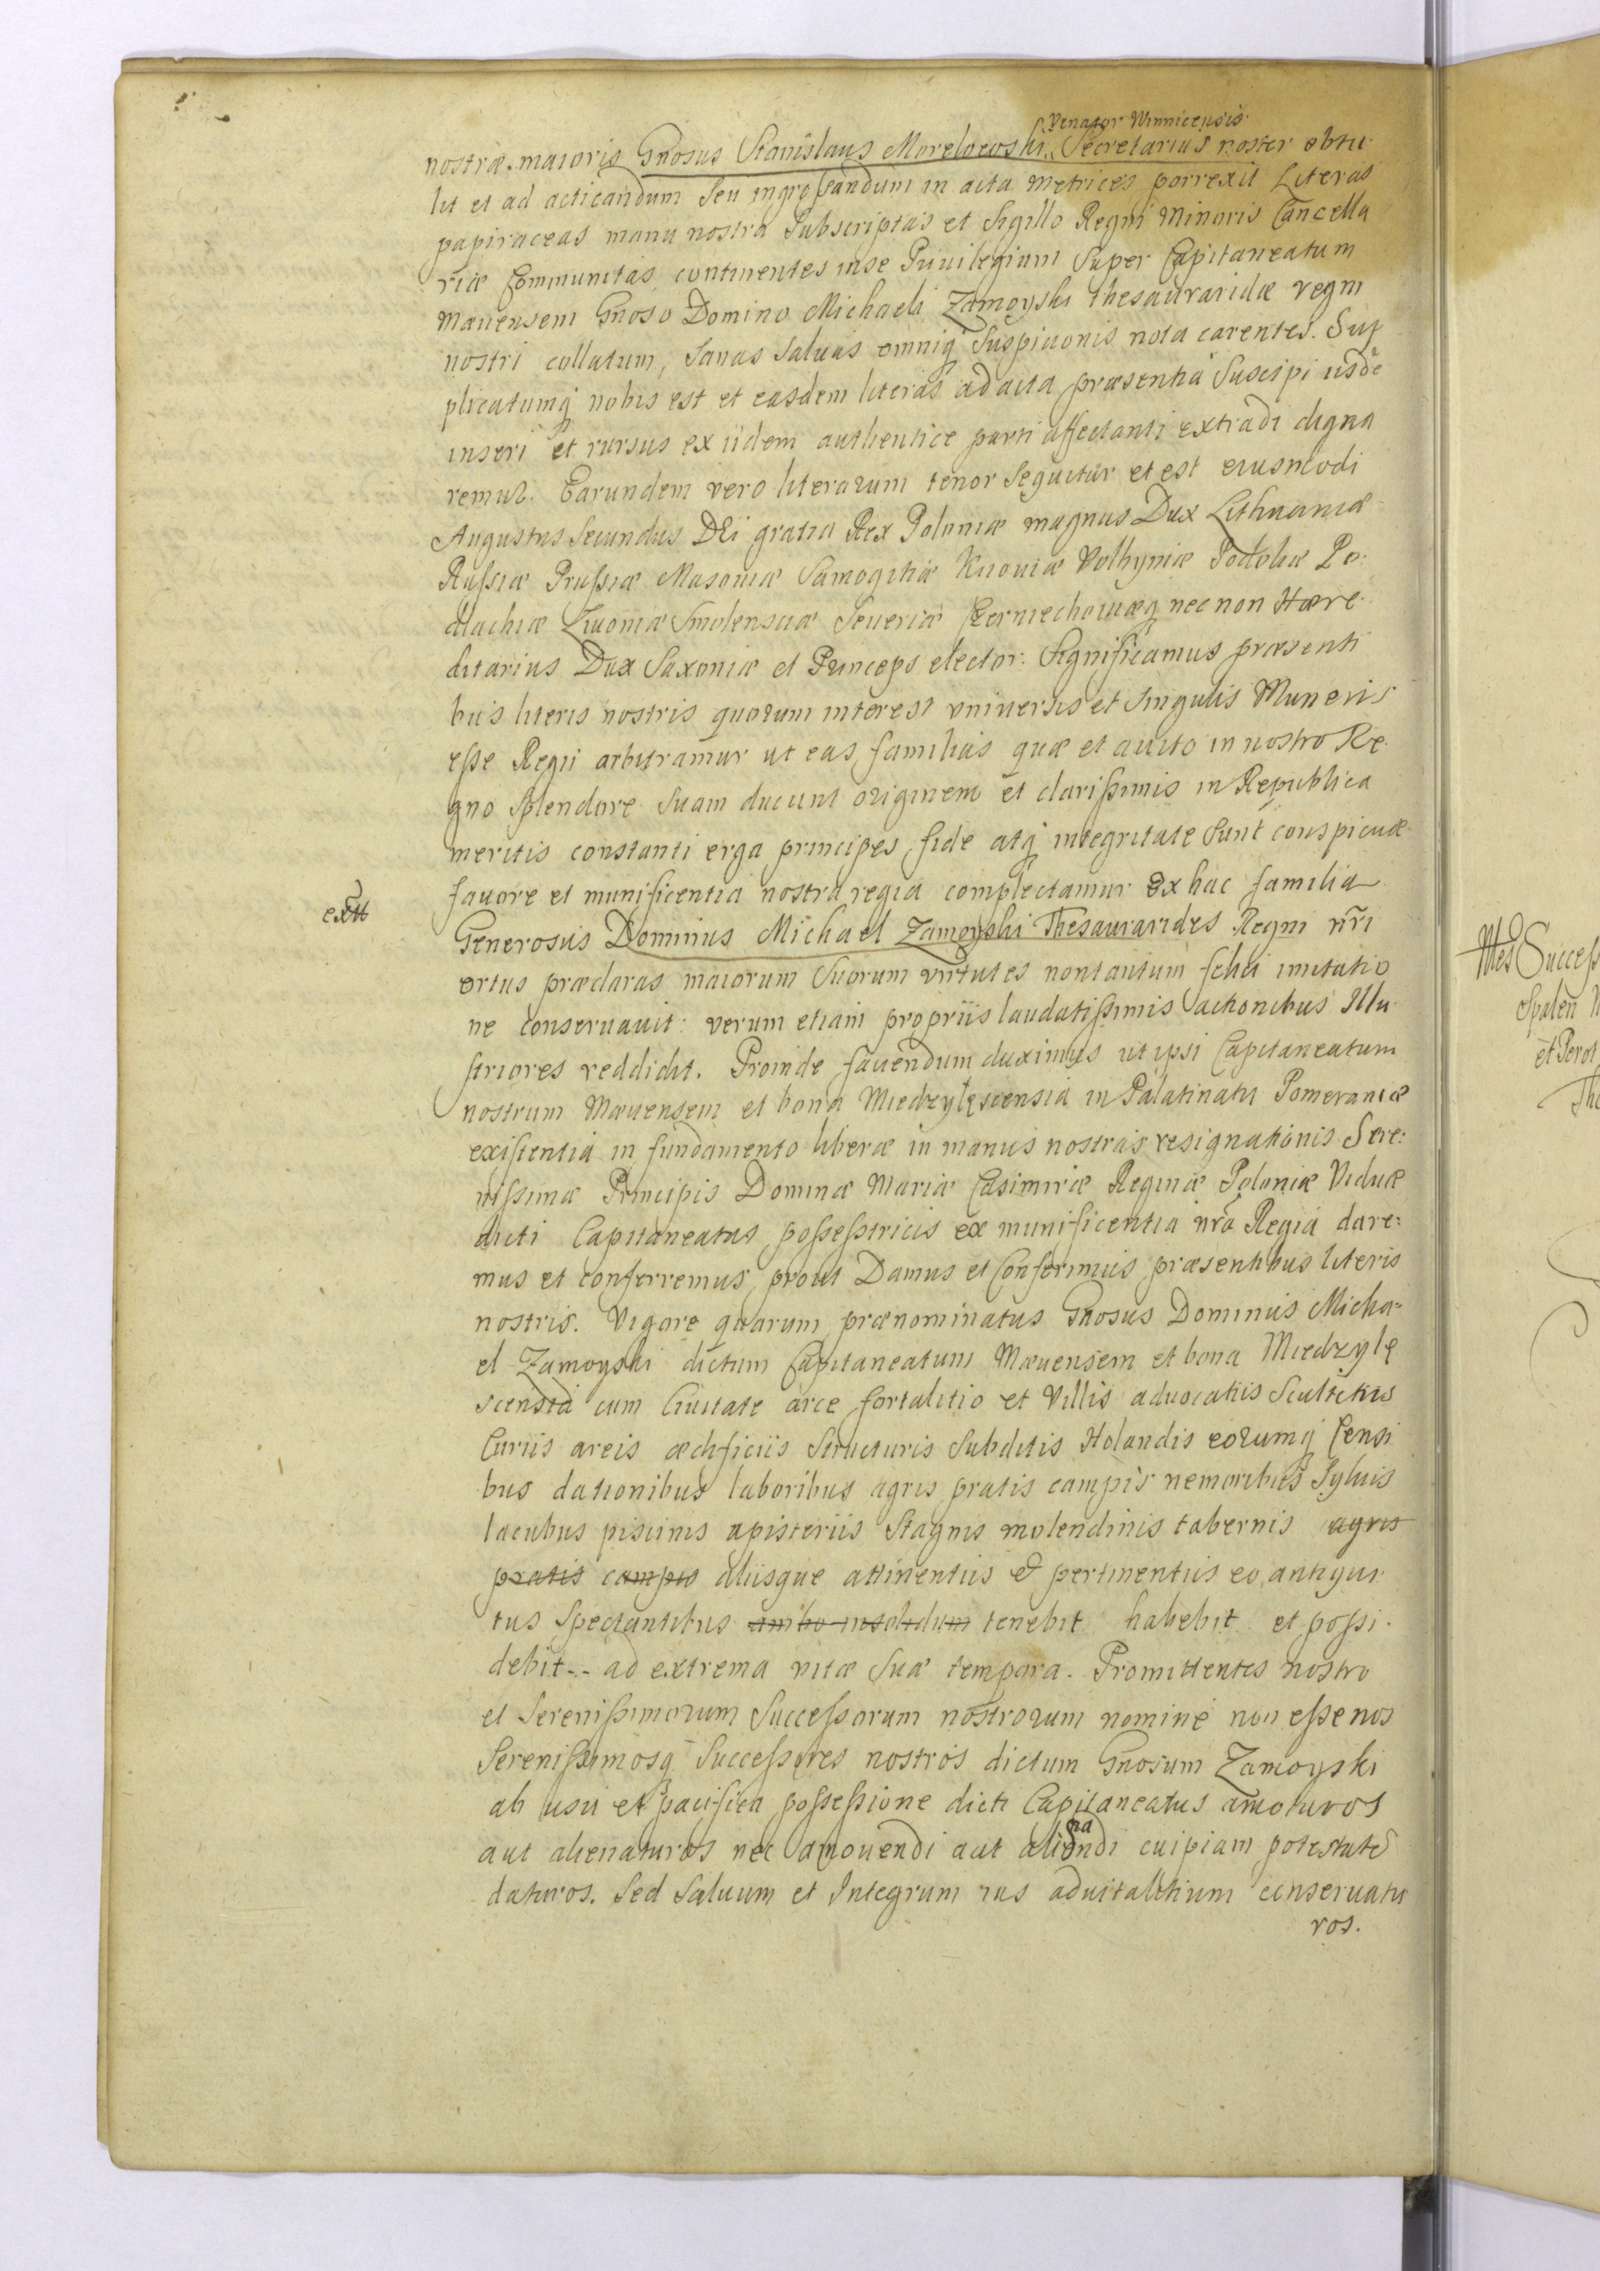 Venator Winnicensis
nostræ maioris Gnosus Stanislaus Morelowski Secretarius noster obtu
lit et ad acticandum seu ingrossandum in acta metrices porrexit Literas
papiraceas manu nostra subscriptas et sigillo Regni Minoris Cancella
riæ Communitas, continentes inse Priuilegium super Capitaneatum
Mæuensem Gnoso Domino Michaeli Zamoyski Thesauraridæ regni
nostri collatum, sanas saluas omniq suspicionis nota carentes. Sup
plicatumq nobis est et easdem literas ad acta præsentia suscipi iisdē
inseri et rursus ex iidem authentice parti affectanti extradi digna
remur. Earundem vero literarum tenor sequitur et est eiusmodi
Augustus Secundus DEi gratia Rex Poloniæ magnus Dux Lithuaniæ
Russiæ Prussiæ Masoviæ Samogitiæ Kiioviæ Volhyniæ Podoliæ Po
dlachiæ Liuoniæ Smolensciæ Seueriæ Czerniechouiæq nec non Hære
ditarius Dux Saxoniæ et Princeps elector. Significamus præsenti
bus literis nostris quorum interest vniuersis et singulis Muneris
esse Regii arbitramur ut eas familias quæ et auito in nostro Re
gno splendore suam ducunt originem et clarissimis in Republica
meritis constanti erga principes fide atq integritate sunt conspicuæ
fauore et munificentia nostra regia complectamur Ex hac familia
extt
Generosus Dominus Michael Zamoyski Thesaurarides Regni nr̃i
ortus præclaras maiorum suorum virtutes nontantum felici imitatio
ne conseruauit: verum etiam propriis laudatissimis actionibus Illu
striores reddidit. Proinde fauendum duximus ut ipsi Capitaneatum
nostrum Mæuensem et bona Miedzylęscensia in Palatinatu Pomeraniæ
existentia in fundamento liberæ in manus nostras resignationis Sere:
nissimæ Principis Dominæ Mariæ Casimiræ Reginæ Poloniæ Viduæ
dicti Capitaneatus possesstricis ex munificentia nr̃a Regia dare:
mus et conferremus, prout Damus et Conferimus præsentibus literis
nostris. Vigore quarum prænominatus Gnosus Dominus Micha=
el Zamoyski dictum Capitaneatum Mæuensem et bona Miedzylę
scensia cum Ciuitate arce fortalitio et Villis aduocatiis Scultetiis
Curiis areis ædificiis structuris subditis Holandis eorumq Censi
bus dationibus laboribus agris pratis campis nemoribus syluis
lacubus piscinis apisteriis stagnis molendinis tabernis agris
pratis campis aliisque attinentiis & pertinentiis eo antiqui
tus spectantibus ambo insolidum tenebit habebit et possi
debit -- ad extrema vitæ suæ tempora. Promittentes nostro
et Serenissimorum Successorum nostrorum nomine non esse nos
Serenissimosq Successores nostros dictum Gnosum Zamoyski
ab usu et pacifica possessione dicti Capitaneatus amoturos
na
aut alienaturos nec amouendi aut aliendi cuipiam potestatē
daturos. Sed Saluum et Integrum ius aduitalitium conseruatu
ros.
Mtes Success
Spalen
et Perot